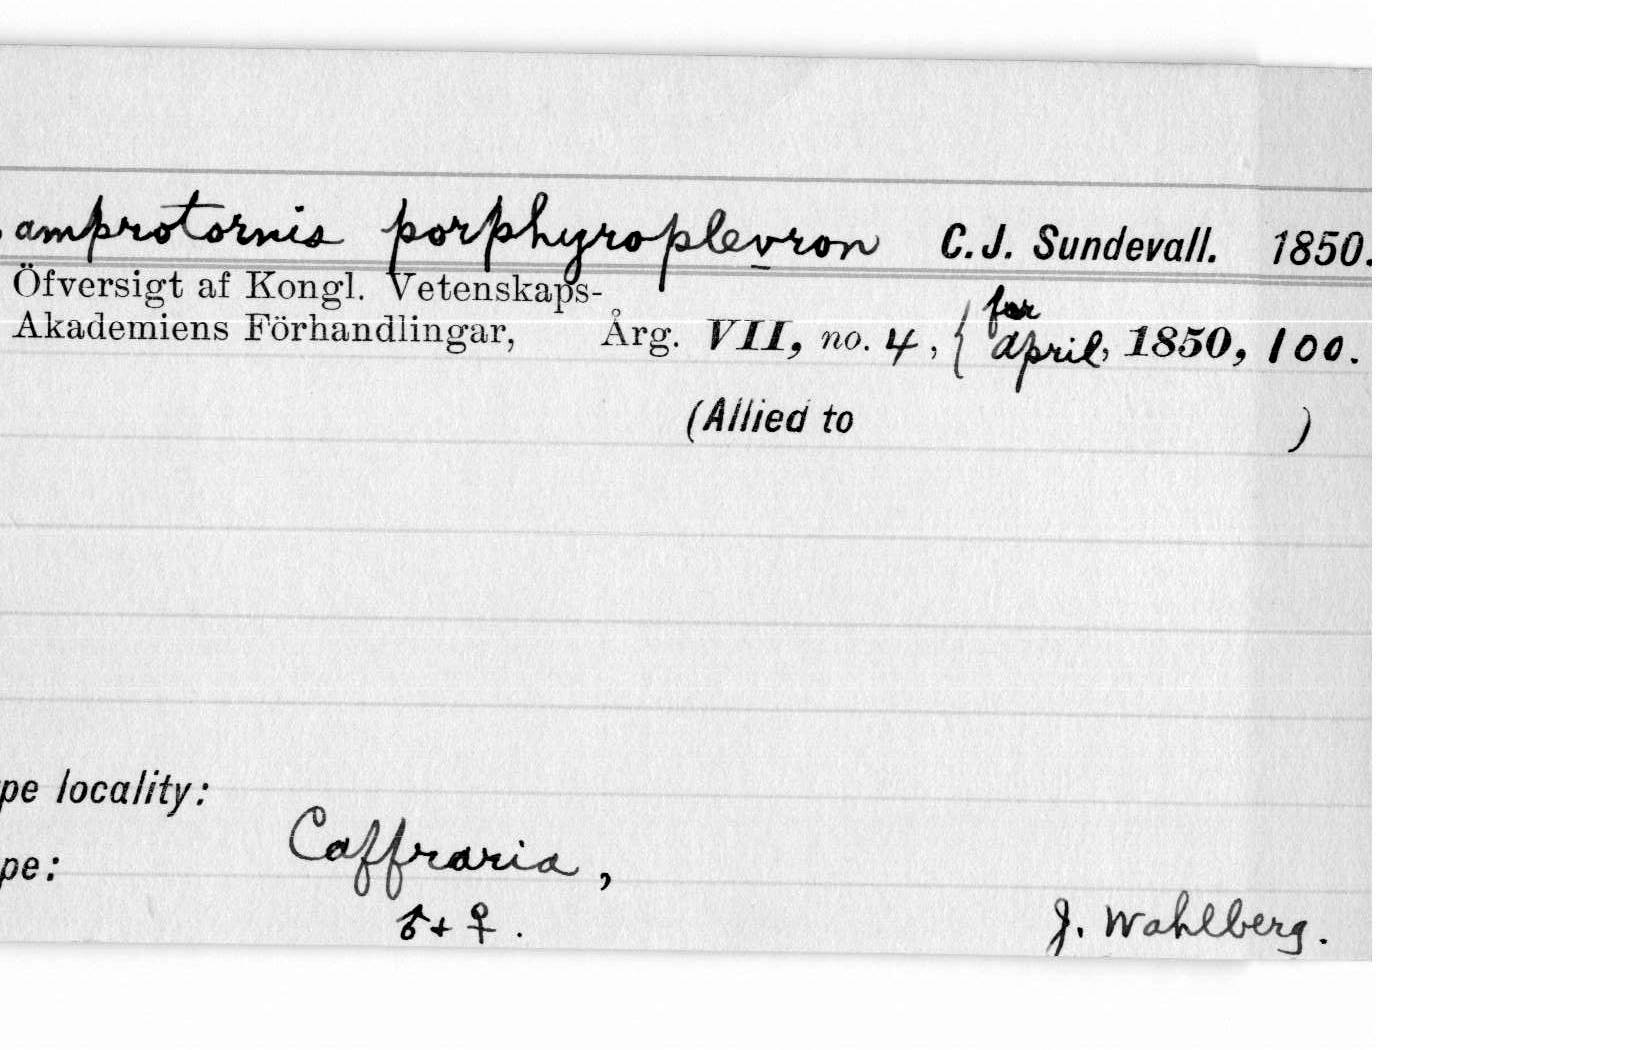 amprotornis porphyroplevron C.J. Sundevall. 1850.
Öfversigt af Kongl. Vetenskaps-
for
Akademiens Förhandlingar, Årg. VII, no. 4, { April, 1850, 100.
(Allied to )
pe locality:
Caffraria,
pe:
♂ + ♀. J. Wahlberg.